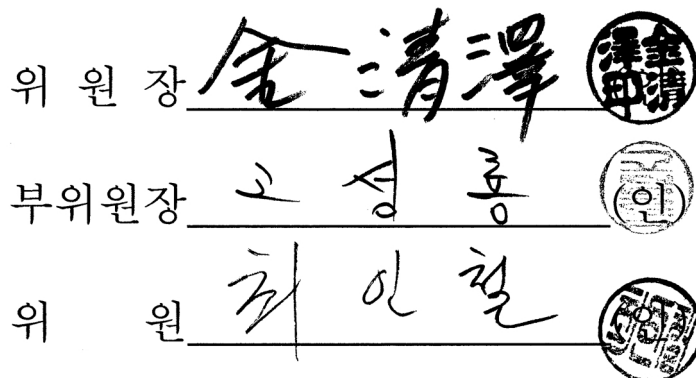 위 원 장 金 清 澤 金清澤印
부위원장 고 성 룡 (인)
위 원 최 인 철 (인)